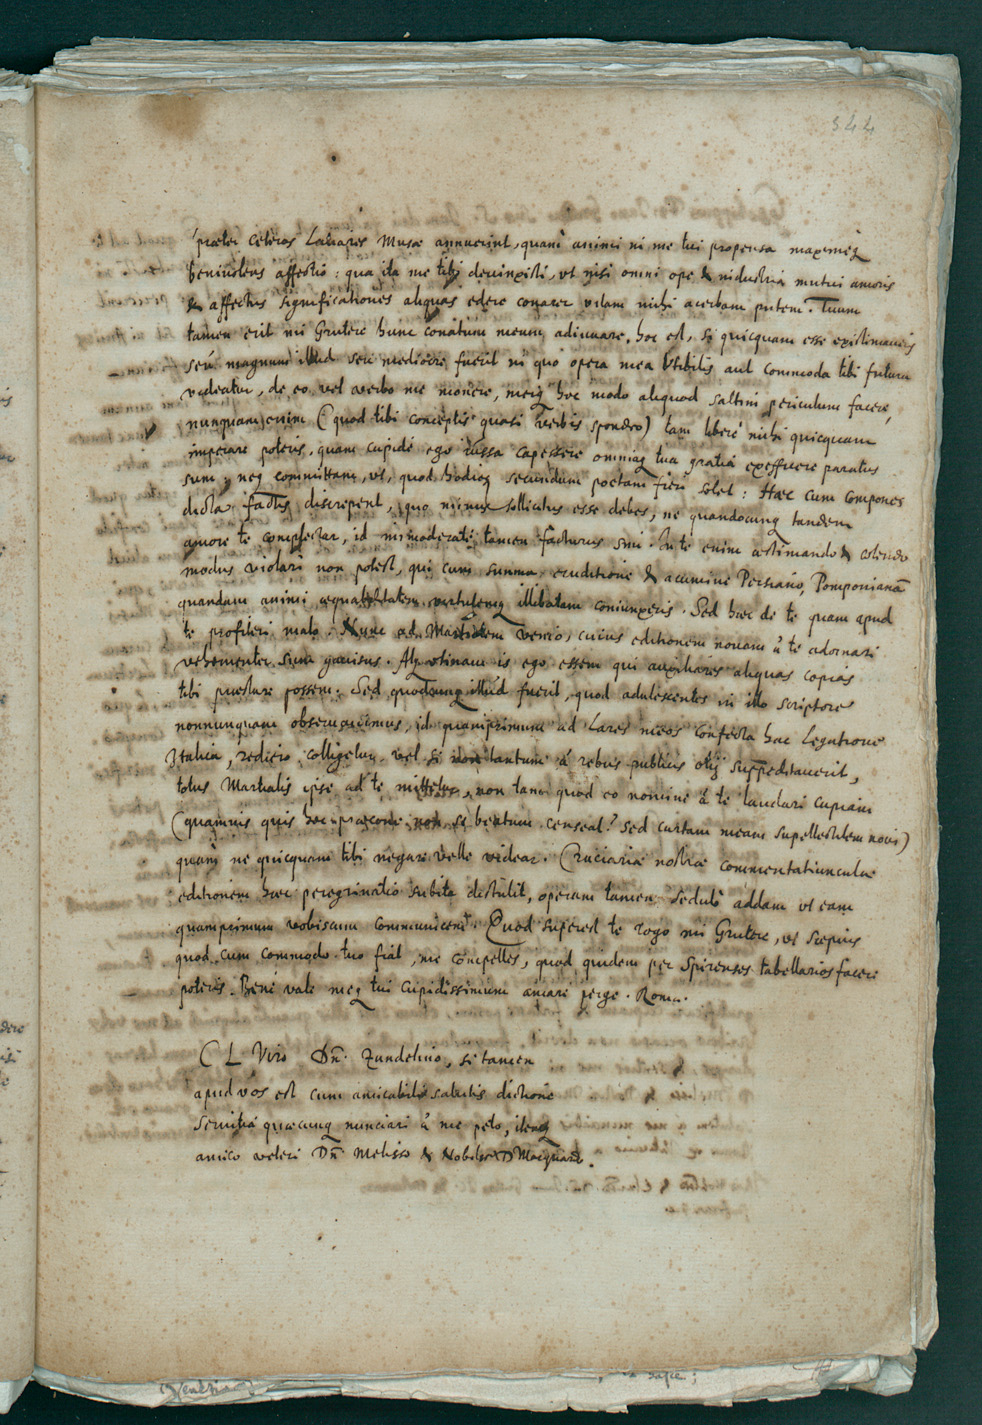 344
praeter ceteros Latiares Musae annuerint, quam animi in me tui propensa maximeq
benivolens affectio: qua ita me tibi devinxisti, ut nisi omni ope & industria mutui amoris
& affectus significationes aliquas edere conarer vitam mihi acerbam putem. Tuum
tamen erit mi Grutere hunc conatum meum adiuvare, hoc est, si quicquam esse existimaveris
seu magnum illud seu mediocre fuerit in quo opera mea utibilis aut commoda tibi futura
videatur, de eo vel verbo me monere, meiq hoc modo aliquod saltim periculum facere,
nunquam enim (quod tibi conceptis quasi verbis spondeo) tam libere mihi quicquam
imperare poteris, quam cupide ego iussa capessere omniaq tua gratia exequere paratus
sum; neq committam, ut, quod hodieq secundum poetam fieri solet: Haec cum compones
dicta factis discrepent, quo minus sollicitus esse debes, ne quandocunq tandem
amore te complectar, id immoderate tamen facturus sim. In te enim aestimando & colendo
modus violari non potest, qui cum summa eruditione & acumine Persiano, Pomponianã
quandam animi aequabilitatem virtutemq illibatam coniunxeris. Sed haec de te quam apud
te profiteri malo. Nunc ad Martialem venio, cuius editionem novam à te adornari
vehementer sum gavisus. Atq utinam is ego essem qui auxiliares aliquas copias
tibi praestare possem. Sed quodcunq illud fuerit, quod adulescentes in illo scriptore
nonnunquam observavimus, id quamprimum ad Lares meos confecta hac legatione
Italica, rediero, colligetur vel si non tantum à rebus publicis otij suppeditaverit,
totus Martialis ipse ad te mittetur, non tam quod eo nomine à te laudari cupiam
(quamvis quis hoc praecone non se beatum censeat? sed curtam meam supellectilem novi)
quam ne quicquam tibi negare velle videar. Cruciariae nostrae commentatiunculae
editionem haec peregrinatio subita distulit, operam tamen sedulo addam ut eam
quamprimum vobiscum communicem. Quod superest te rogo mi Grutere, ut saepius
quod cum commodo tuo fiat, me compelles, quod quidem per Spirenses tabellarios facere
poteris. Bene vale meq tui cupidissimum amare perge. Roma.
CL Viro Dn. Zundelino, si tamen
apud vos est cum amicabilis salutis dictione
servitia quaecunq nunciari à me peto, itemq
amico veteri Dn Melisso & Nobiliss D Macquard.